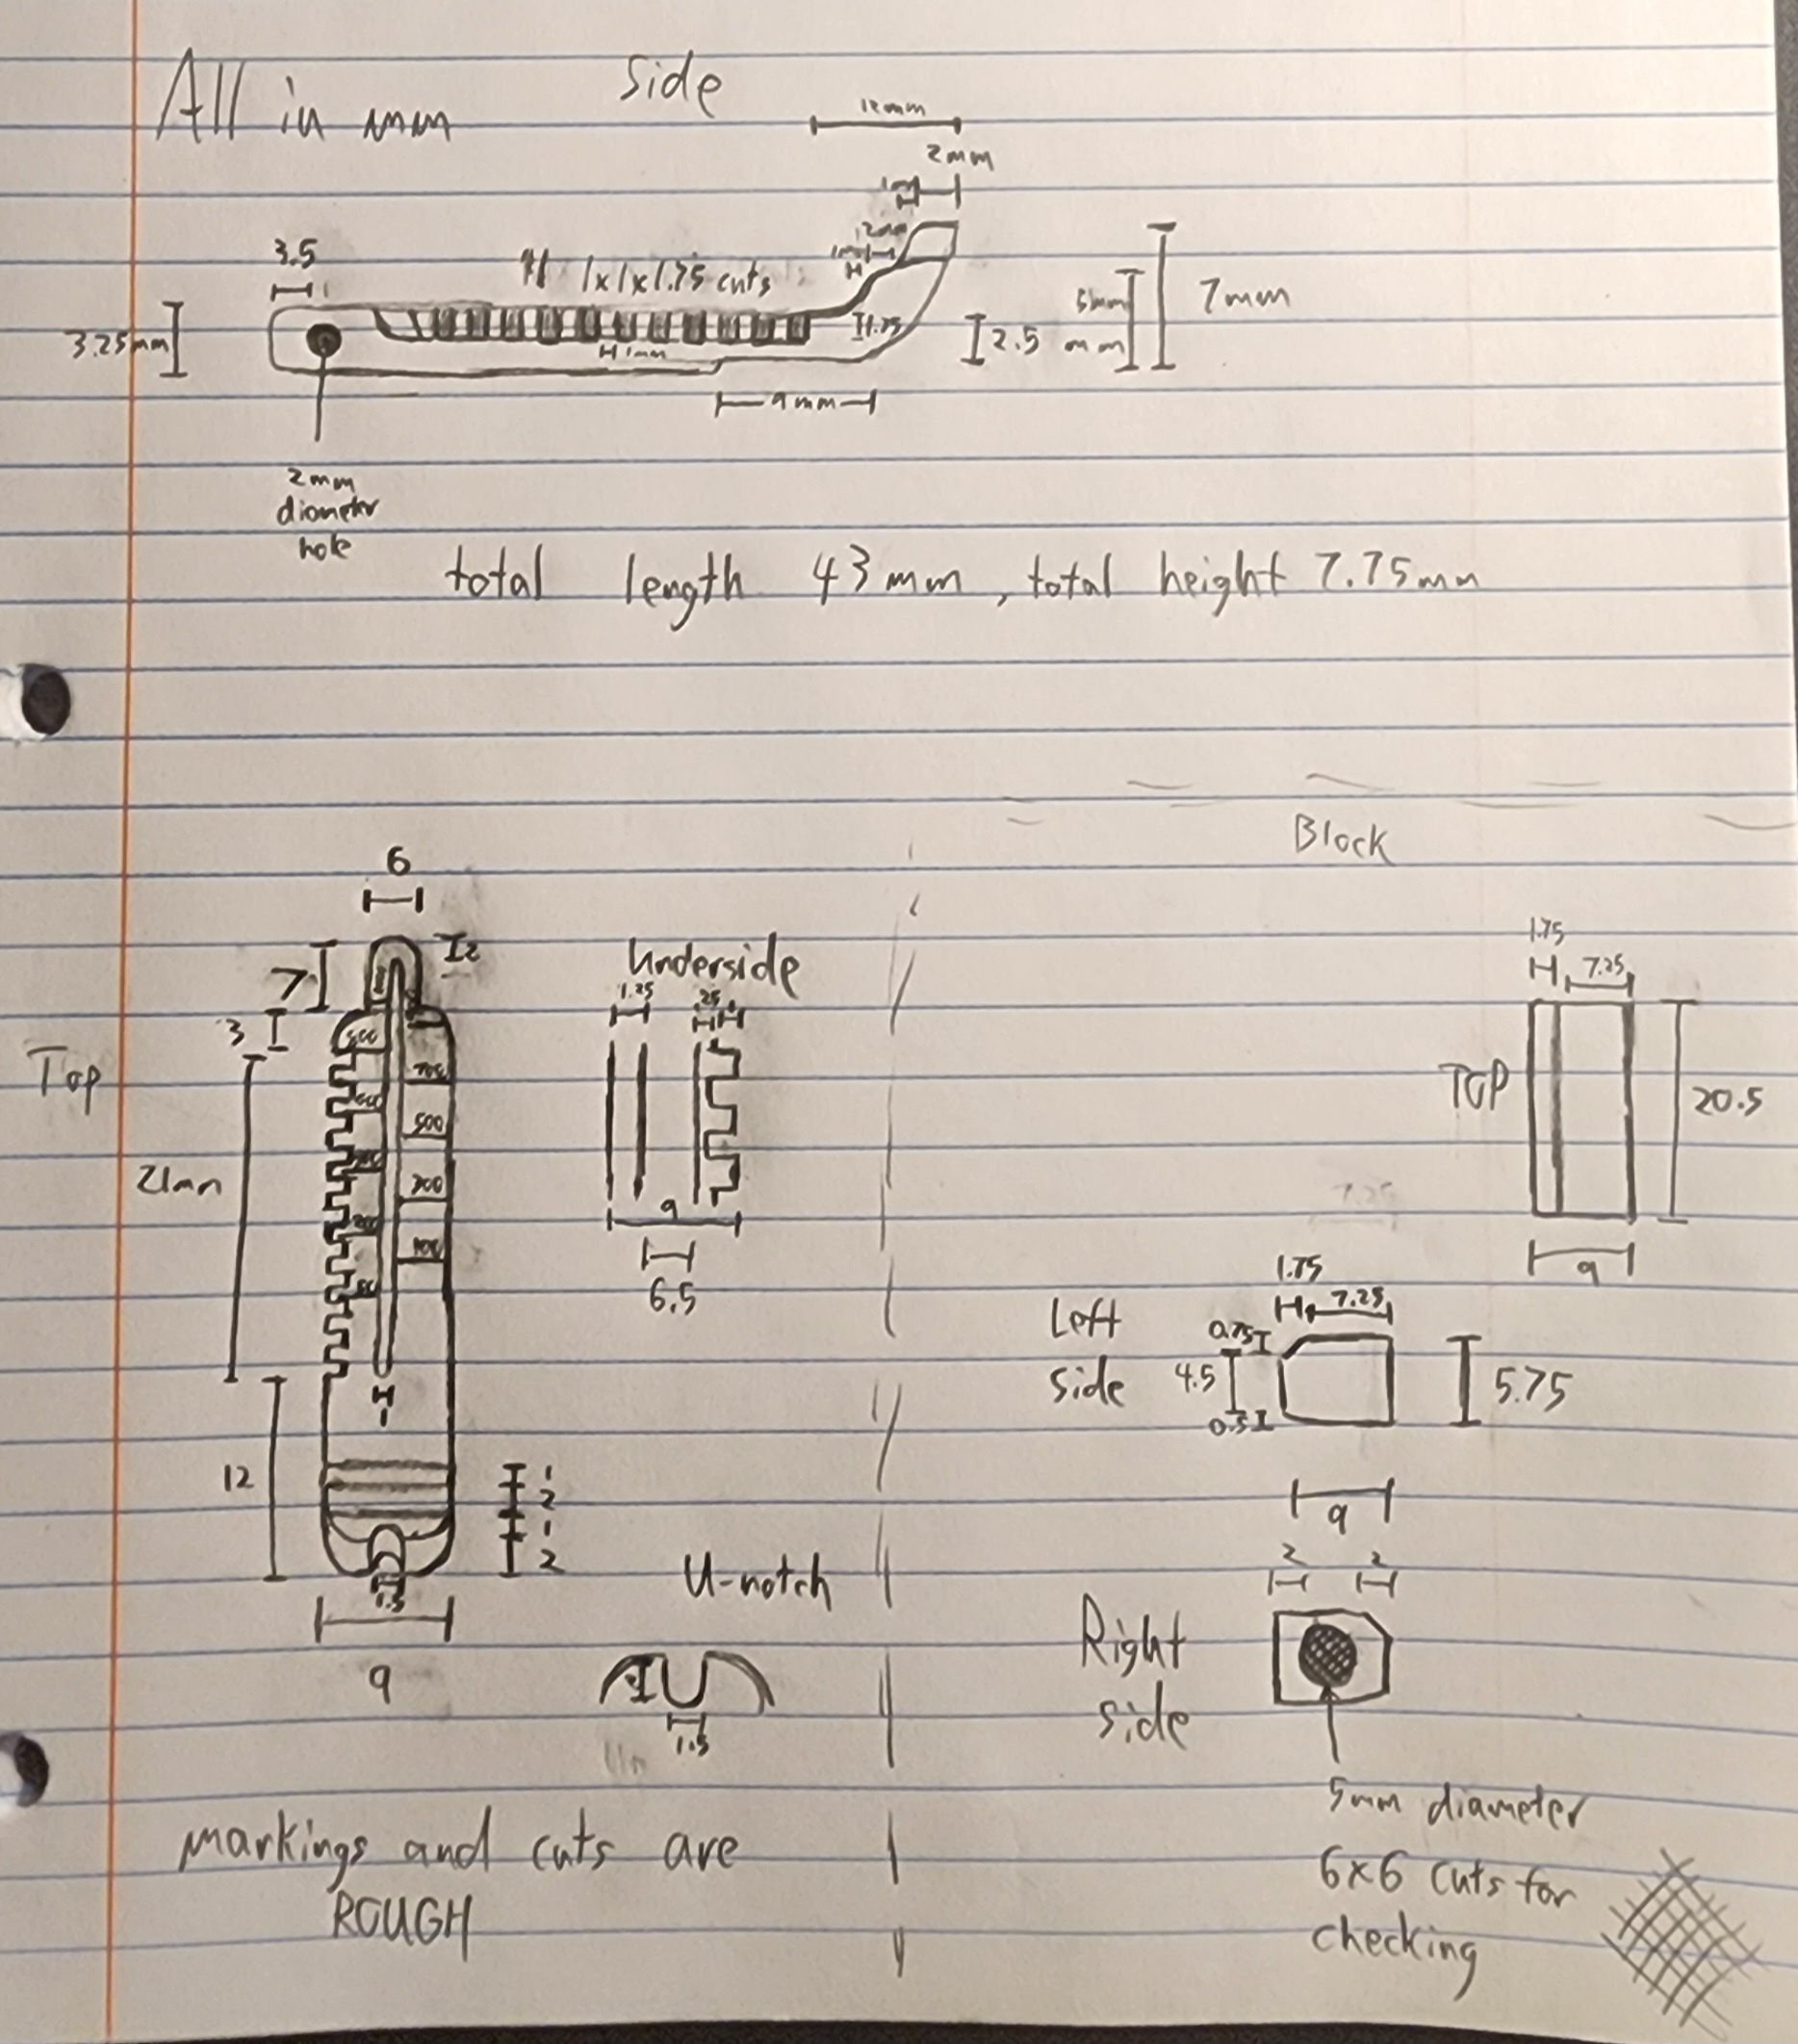 All in mm
Side
12mm
2mm
1mm
2mm
1mm
3.5
11 1x1x1.75 cuts
3.25mm
1mm
1.75
2.5 mm
5mm
7mm
9mm
2mm
diameter
hole
total length 43mm, total height 7.75mm
Block
6
7
2
3
Top
21mm
700
500
300
100
12
1
1
2
1
2
1.5
9
Underside
1.25
.25
9
6.5
U-notch
1.5
markings and cuts are
ROUGH
1.75
7.25
TOP
20.5
9
7.25
1.75
7.25
Left
side
0.75
4.5
0.5
5.75
9
2
2
Right
side
5mm diameter
6x6 cuts for
checking